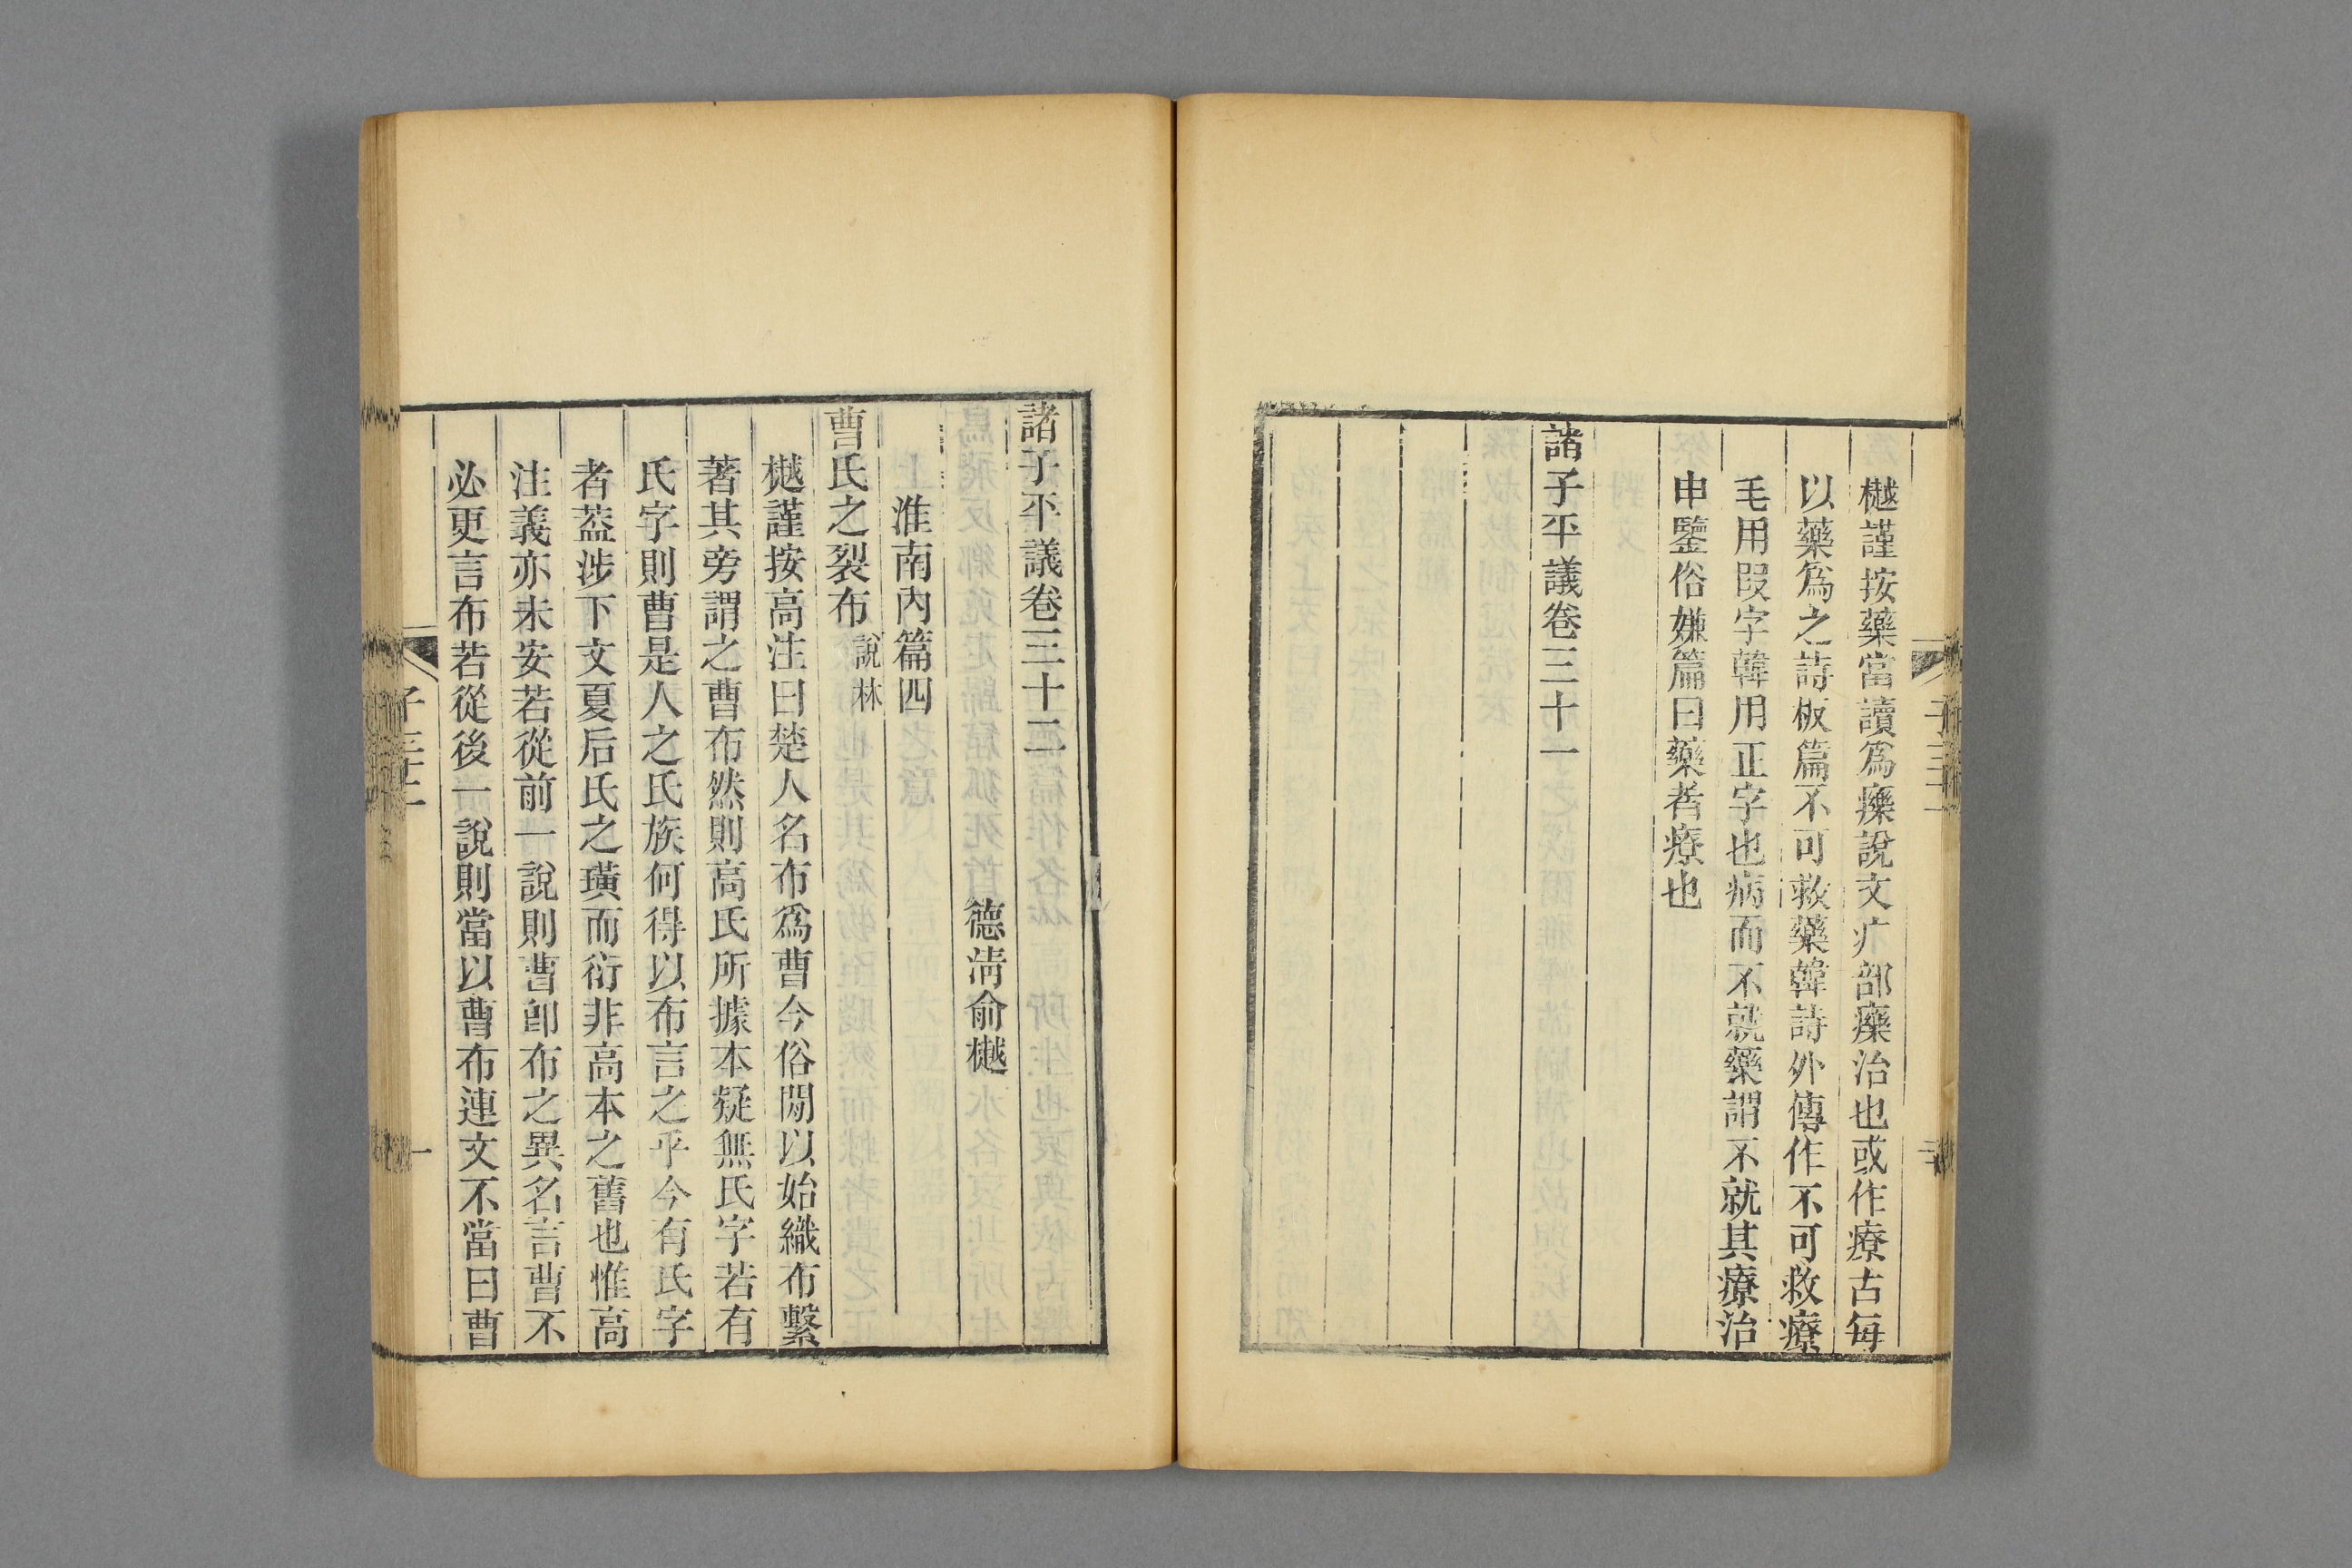 樾謹按藥當讀爲㿑說文疒部㿑治也或作療古每
以藥爲之詩板篇不可救藥韓詩外傳作不可救療
毛用叚字韓用正字也病而不就藥謂不就其療治
申鑒俗嫌篇曰藥者療也
諸子平議卷三十一
諸子平議卷三十二
德淸俞樾
淮南內篇四
曹氏之裂布說林
樾謹按高注曰楚人名布爲曹今俗閒以始織布繫
著其旁謂之曹布然則高氏所據本疑無氏字若有
氏字則曹是人之氏族何得以布言之乎今有氏字
者葢涉下文夏后氏之璜而衍非高本之舊也惟高
注義亦未安若從前一說則曹卽布之異名言曹不
必更言布若從後一說則當以曹布連文不當曰曹
子三十二
一